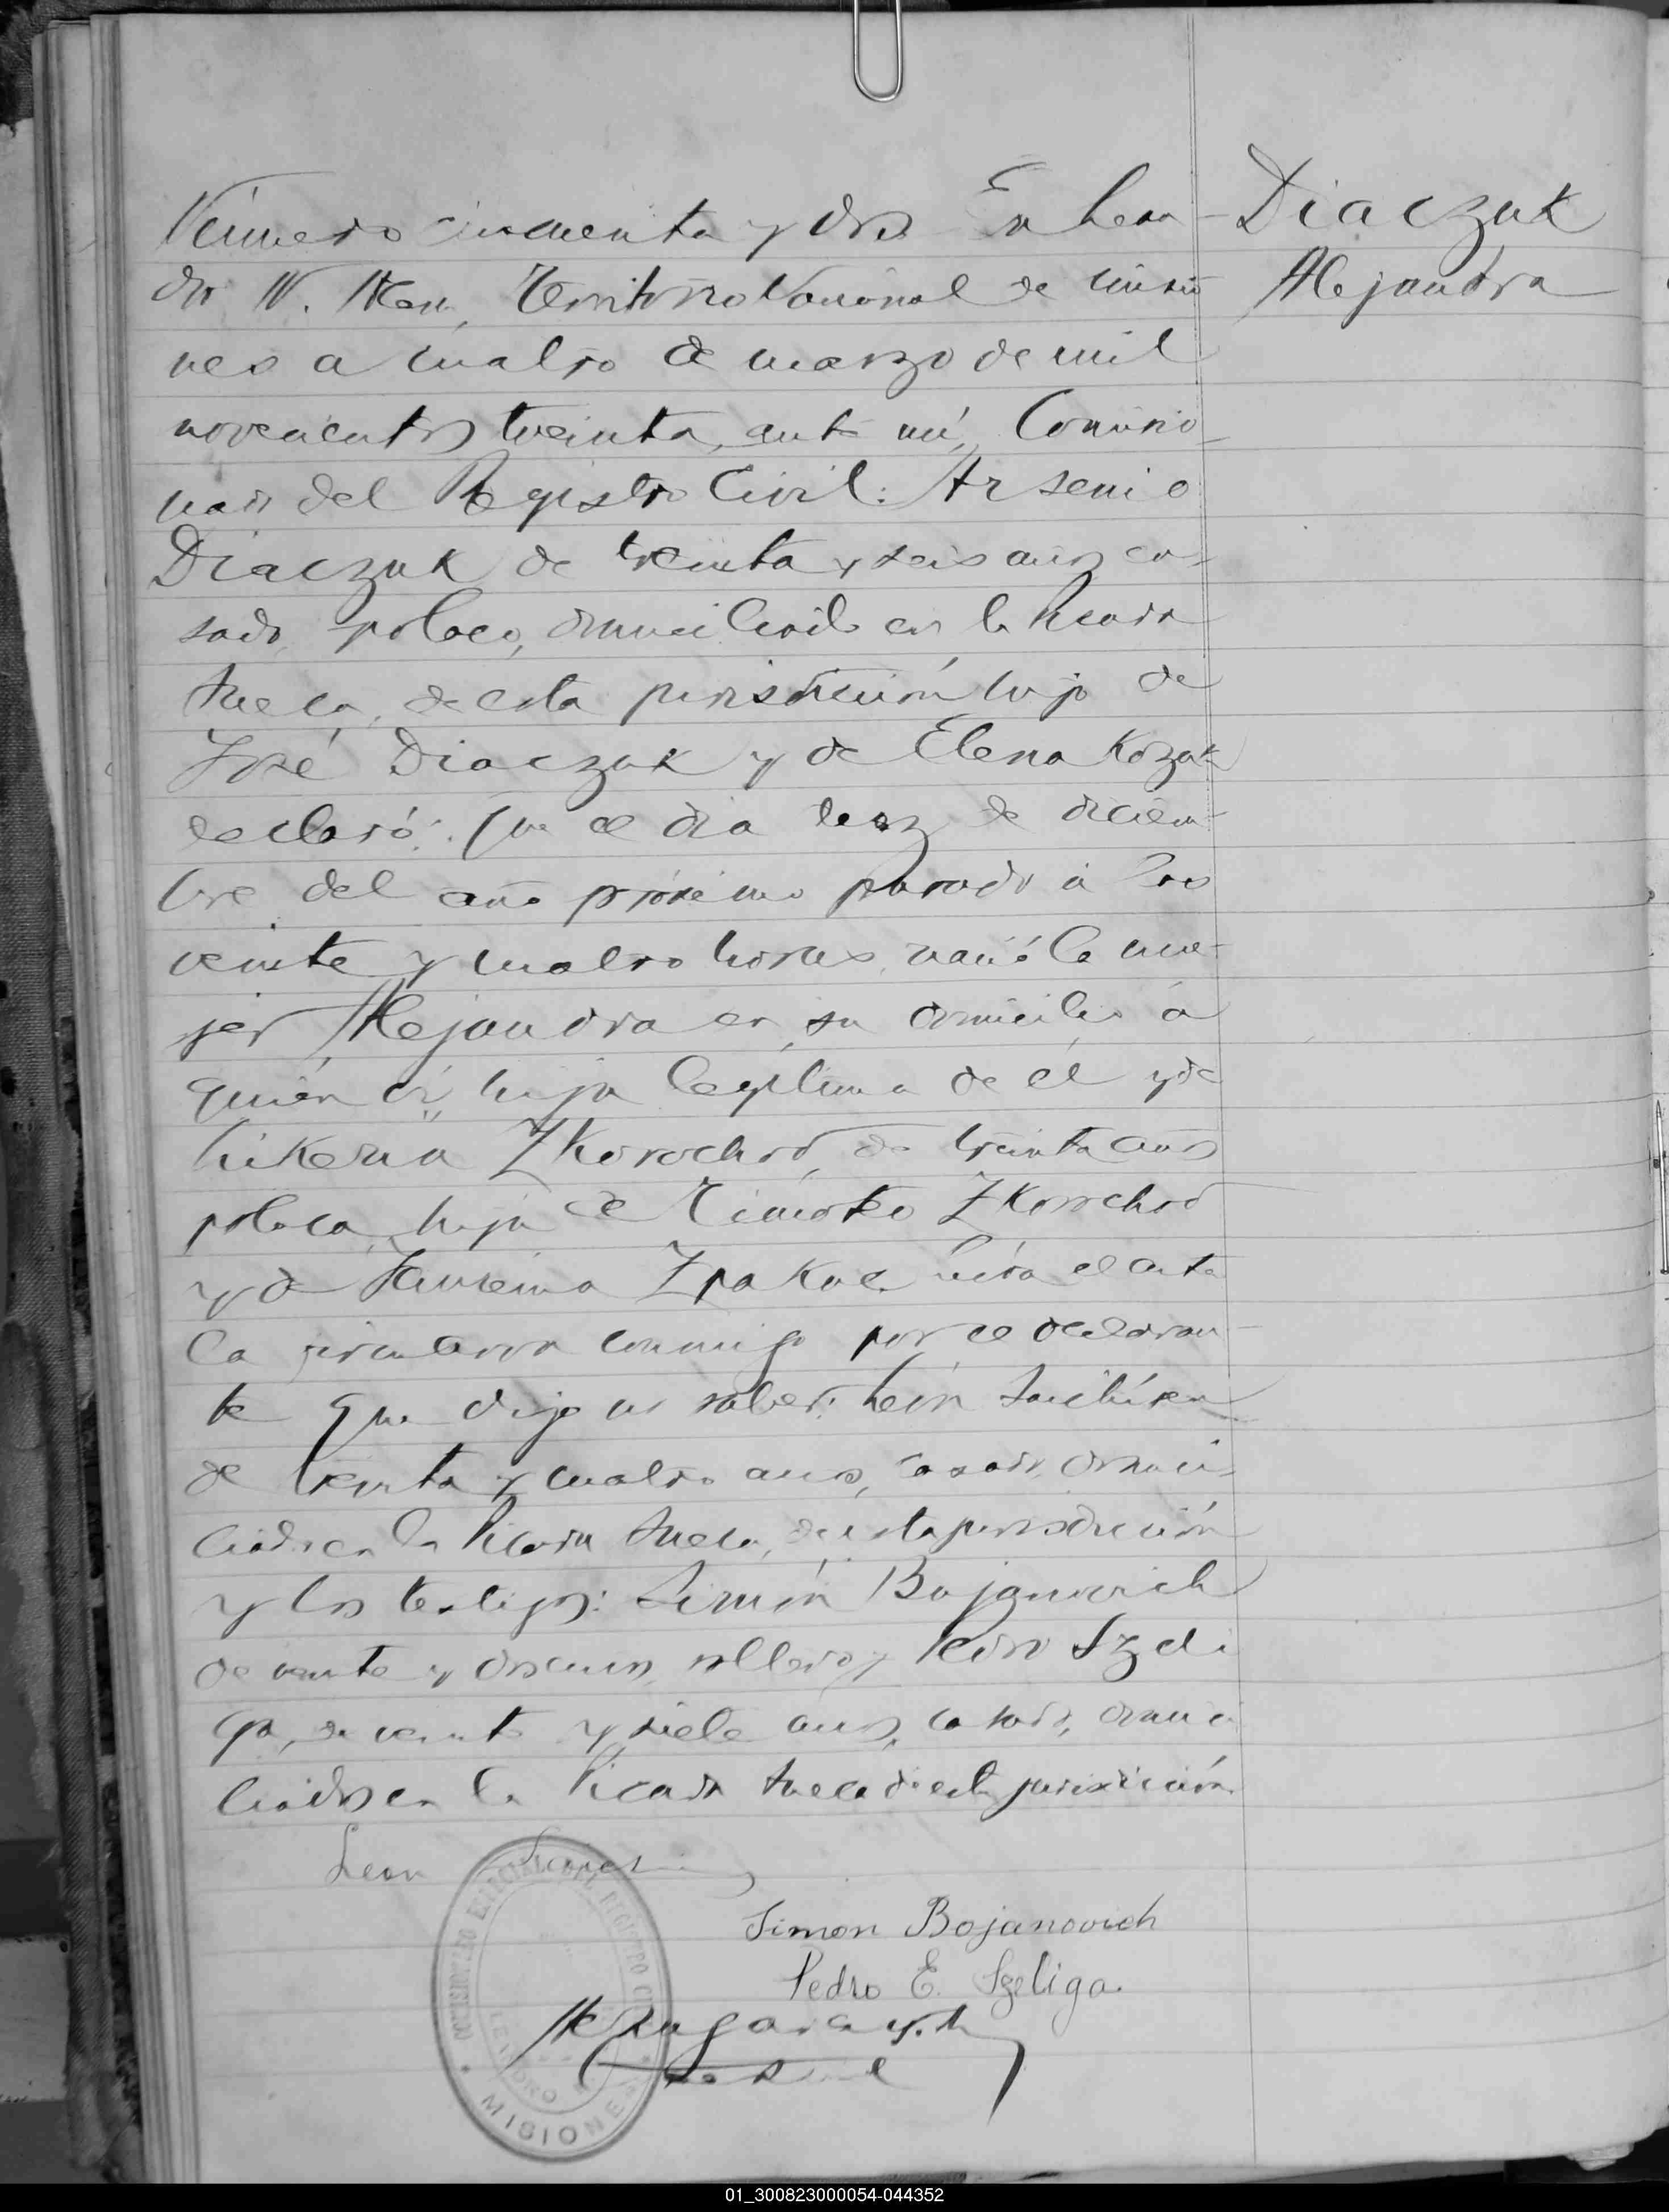 Número cincuenta y dos En Lean-
dro N. Alem, Territorio Nacional de Misio
nes a cuatro de marzo de mil
novecientos treinta, ante mí, Comisio-
nado del Registro Civil: Arsenio
Diaczuk de treinta y seis años ca-
sado, polaco, domiciliado en la Picada
Sueca, de esta jurisdicción hijo de
José Diaczuk y de Elena Kozak
declaró: Que el dia diez de diciem-
bre del año próximo pasado a las
veinte y cuatro horas, nació la mu-
jer Alejandra en su domicilio á
quién ví, hija legítima de él y de
Likeria Zkorochod, de treinta años
polaca, hija de Timoteo Zkorochod
y de Zpakue. leída el acta
la firmaron conmigo por el declaran-
te que dijo no saber: León
de treinta y cuatro años, casado, domici-
liado en la Picada Sueca, de esta jurisdicción
y los testigos: Simón Bojanovich
de veinte y dos años, soltero y Pedro Szeli
ga, de veinte y siete años, casado, domici
liados en la Picada Sueca de esta jurisdicción
Leon
Simon Bojanovich
Pedro E. Szeliga.
Diaczuk
Alejandra
COMISIONADO ESPECIAL DEL REGISTRO CIVIL
LEANDRO N.
MISIONES
01_300823000054-044352